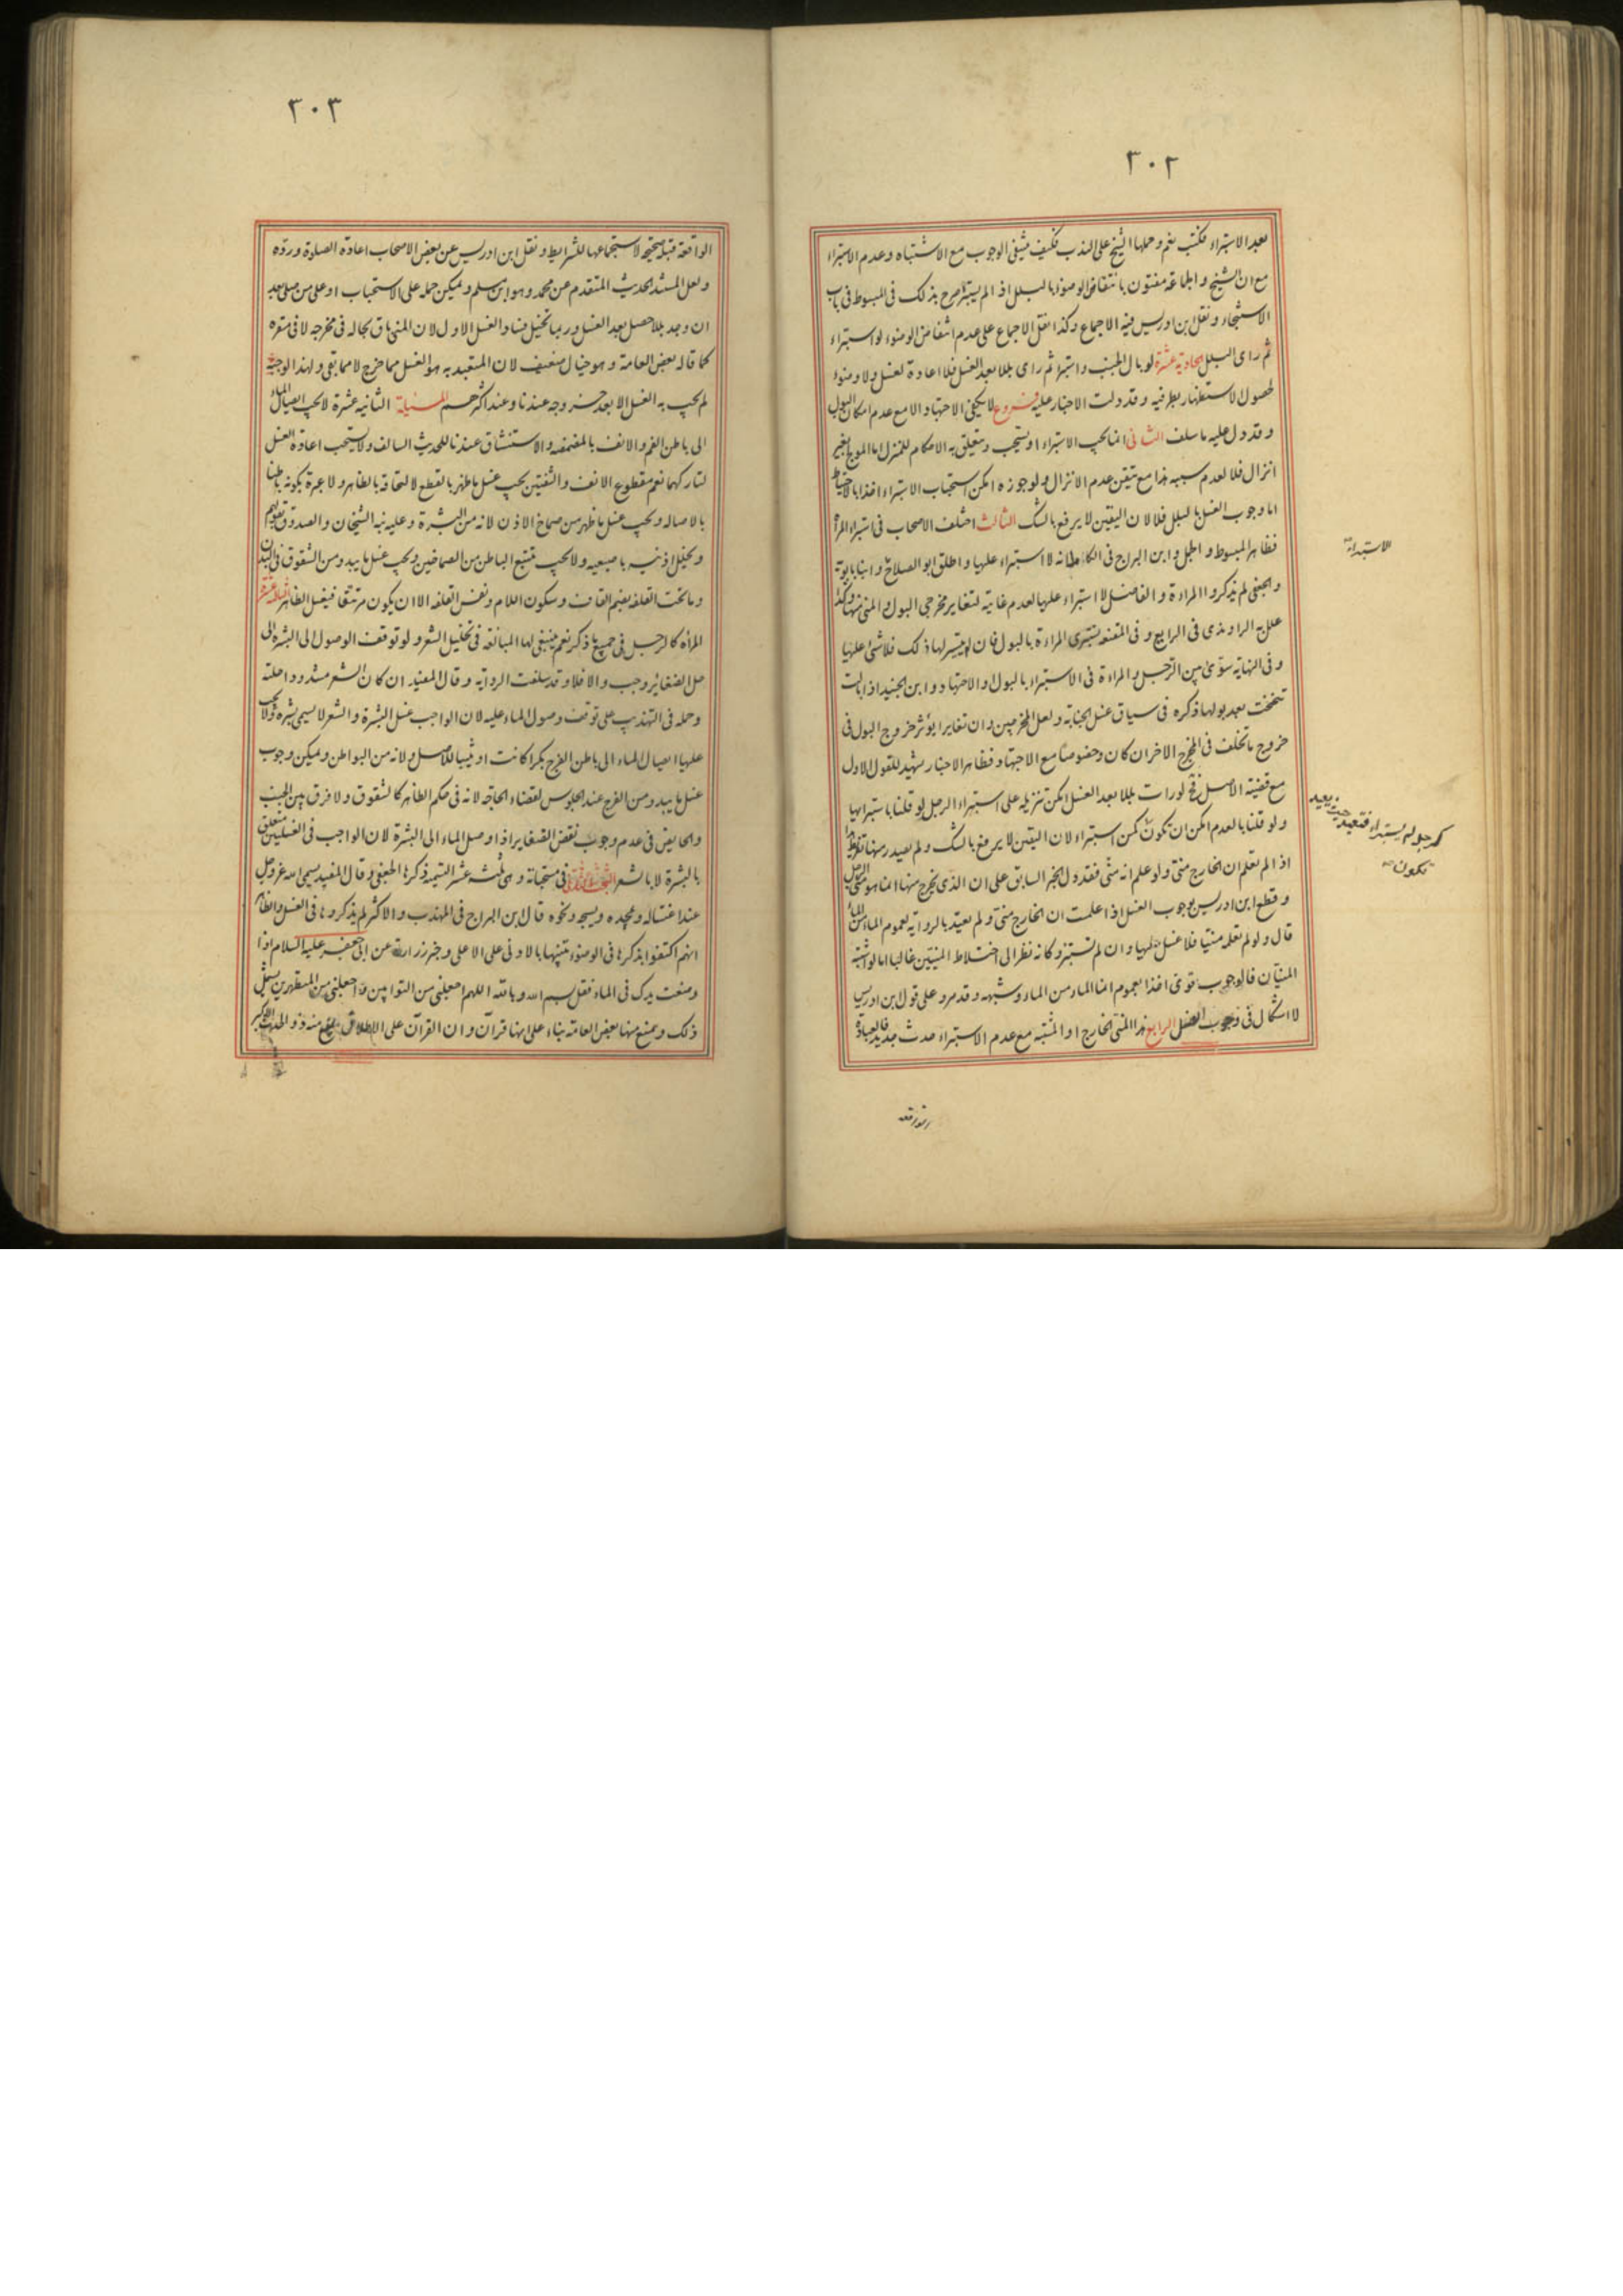 ٣٠٢
بعد الاستبراء فكتب نعم وحملها الشيخ على الندب فكيف ينتفى الوجوب مع الاشتباه وعدم الاستبراء
مع ان الشيخ والجماعة مفتون بانتقاض الوضوء بالبلل اذا لم يستبرا صرح بذلك فى المبسوط فى باب
الاستنجاء ونقل ابن ادريس فيه الاجماع وكذا نقل الاجماع على عدم انتقاض الوضوء لو استبراء
ثم راى البلل الحادية عشرة لو بال الجنب واستبرا ثم راى بللا بعد الغسل فلا اعادة لغسل ولا وضوء
لحصول الاستظهار بطرفيه وقد دلت الاخبار عليه فروع لا يكفى الاجتهاد الا مع عدم امكان البول
وقد دل عليه ما سلف الثانى انما يجب الاستبراء او يستحب ويتعلق به الاحكام للمنزل اما المولج بغير
انزال فلا لعدم سببه هذا مع تيقن عدم الانزال ولو جوزه امكن استحباب الاستبراء اخذا بالاحتياط
اما وجوب الغسل بالبلل فلا لان اليقين لا يرفع بالشك الثالث اختلف الاصحاب فى استبراء المراة
فظاهر المبسوط والجمل وابن البراج فى الكامل انه لا استبراء عليها واطلق ابو الصلاح وابنا بابويه
والجعفى لم يذكروا المراءة والفاضل لا استبراء عليها لعدم غايته لتغاير مخرجى البول والمنى منها وكذا
علل به الراوندى فى الرايع وفى المقنعة يستبرى المراءة بالبول فان لم يتيسر لها ذلك فلا شئ عليها
وفى النهاية سوّى بين الرجل والمراءة فى الاستبراء بالبول والاجتهاد وابن الجنيد اذا بالت
تنحنحت بعد بولها ذكره فى سياق غسل الجنابة ولعل المخرجين وان تغايرا يؤثر خروج البول فى
خروج ما تخلف فى المخرج الاخر ان كان وخصوصاً مع الاجتهاد فظاهر الاخبار يشهد للقول الاول
مع قضية الاصل فح لو رات بللا بعد الغسل امكن تنزيله على استبراء الرجل لو قلنا باستبرائها
ولو قلنا بالعدم امكن ان تكون كمن استبراء لان اليقين لا يرفع بالشك ولم يصدر منها تفريط
اذا لم تعلم ان الخارج منى ولو علم انه منى فقد دل الخبر السابق على ان الذى يخرج منها انما هو منى الرجل
وقطع ابن ادريس بوجوب الغسل اذا علمت ان الخارج منى ولم يعتد بالرواية لعموم الماء من الماء
قال ولو لم تعلمه منيا فلا غسل عليها وان لم تستبرء وكانه نظر الى اختلاط المنيين غالبا اما لو اشتبه
المنيان فالوجوب قوى اخذا بعموم انما الماء من الماء وشبهه وقد مر وعلى قول ابن ادريس
لا اشكال فى وجوب الغسل الرابع هذا المنى الخارج او المشتبه مع عدم الاستبراء حدث جديد فالعبادة
الاستبراء
كرجل لم يستبراء فتعيد حينئذ
تكون
الواقعة
٣٠٣
الواقعة قبله صحيحة لاستجماعها للشرايط ونقل ابن ادريس عن بعض الاصحاب اعادة الصلوة ورده
ولعل المستند الحديث المتقدم عن محمد وهو ابن مسلم ويمكن حمله على الاستحباب او على من صلى بعد
ان وجد بللا حصل بعد الغسل وربما تخيل فساد الغسل الاول لان المنى باق بحاله فى مخرجه لا فى مقره
كما قاله بعض العامة وهو خيال ضعيف لان المتعبد به هو الغسل مما خرج لا مما بقى ولهذا لو حبسه
لم يجب به الغسل الا بعد خروجه عندنا وعند اكثرهم الثانية عشرة لا يجب ايصال الماء
الى باطن الفم والانف بالمضمضة والاستنشاق عندنا للحديث السالف ولا يستحب اعادة الغسل
لتاركهما نعم مقطوع الانف والشفتين يجب غسل ما ظهر بالقطع لالتحاقه بالظاهر ولا عبرة بكونه باطنا
بالاصالة ويجب غسل ما ظهر من صماخ الاذن لانه من البشرة وعليه نبه الشيخان والصدوق بقولهم
ويخلل اذنيه باصبعيه ولا يجب تتبع الباطن من الصماخين ويجب غسل ما يبدو من الشقوق فى البدن
وما تحت القلفة بضم القاف وسكون اللام ونفس القلفة الا ان يكون مرتتقا فيغسل الظاهر الثالثة عشرة
المراة كالرجل فى جميع ما ذكر نعم ينبغى لها المبالغة فى تخليل الشعر ولو توقف الوصول الى البشرة الى
حل الضفائر وجب والا فلا وقد سلفت الرواية وقال المفيد ان كان الشعر مشدودا حلته
وحمله فى التهذيب على توقف وصول الماء عليه لان الواجب غسل البشرة والشعر لا يسمى بشرة ولا يجب
عليها ايصال الماء الى باطن الفرج بكرا كانت او ثيبا للاصل ولانه من البواطن ويمكن وجوب
غسل ما يبدو من الفرج عند الجلوس لقضاء الحاجة لانه فى حكم الظاهر كالشقوق ولا فرق بين الجنب
والحايض فى عدم وجوب نقض الضفاير اذا وصل الماء الى البشرة لان الواجب فى الغسلين متعلق
بالبشرة لا بالشعر البحث الثانى فى مستحباته وهى ثلثة عشر التسمية ذكره الجعفى وقال المفيد يسمى الله عز وجل
عند اغتساله ويمجده ويسبحه ونحوه قال ابن البراج فى المهذب والاكثر لم يذكروها فى الغسل والظاهر
انهم اكتفوا بذكرها فى الوضوء تنبيها بالادنى على الاعلى وخبر زرارة عن ابى جعفر عليه السلام اذا
وضعت يدك فى الماء فقل بسم الله وبالله اللهم اجعلنى من التوابين واجعلنى من المتطهرين يشمل
ذلك ويمنع منها بعض العامة بناء على انها قرآن وان القرآن على الاطلاق يمنع منه ذو الحدث الاكبر